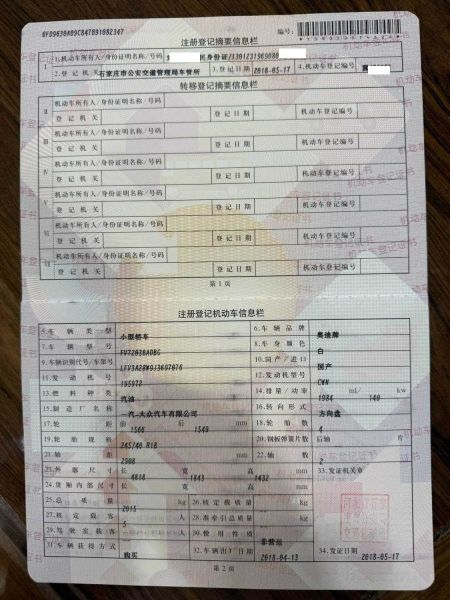 注册登记摘要信息栏
编号：
1.机动车所有人/身份证明名称/号码
2.登记机关 石家庄市公安交通管理局车管所 3.登记日期 2018-05-17 4.机动车登记编号
转移登记摘要信息栏
II 机动车所有人/身份证明名称/号码
登记机关 登记日期 机动车登记编号
III 机动车所有人/身份证明名称/号码
登记机关 登记日期 机动车登记编号
IV 机动车所有人/身份证明名称/号码
登记机关 登记日期 机动车登记编号
V 机动车所有人/身份证明名称/号码
登记机关 登记日期 机动车登记编号
VI 机动车所有人/身份证明名称/号码
登记机关 登记日期 机动车登记编号
VII 机动车所有人/身份证明名称/号码
登记机关 登记日期 机动车登记编号
第1页
注册登记机动车信息栏
5.车辆类型 小型轿车 6.车辆品牌 奥迪牌
7.车辆型号 8.车身颜色 白
9.车辆识别代号/车架号 10.国产/进口 国产
11.发动机号 195972 12.发动机型号 CWN
13.燃料种类 汽油 14.排量/功率 1984 ml/ 140 kw
15.制造厂名称 一汽-大众汽车有限公司 16.转向形式 方向盘
17.轮距 前 1566 后 1549 mm 18.轮胎数 4
19.轮胎规格 245/40 R18 20.钢板弹簧片数 后轴 片
21.轴距 mm 22.轴数 2
23.外廓尺寸 长 4818 宽 1843 高 1432 mm 33.发证机关章
24.货厢内部尺寸 长 宽 高 mm
25.总质量 2015 kg 26.核定载质量 kg
27.核定载客 5 人 28.准牵引总质量 kg
29.驾驶室载客 人 30.使用性质 非营运
31.车辆获得方式 购买 32.车辆出厂日期 2018-04-13 34.发证日期 2018-05-17
第2页